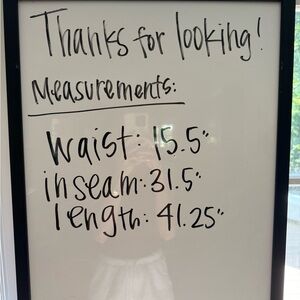 Thanks for looking!
Measurements:
Waist: 15.5"
inseam: 31.5"
length: 41.25"